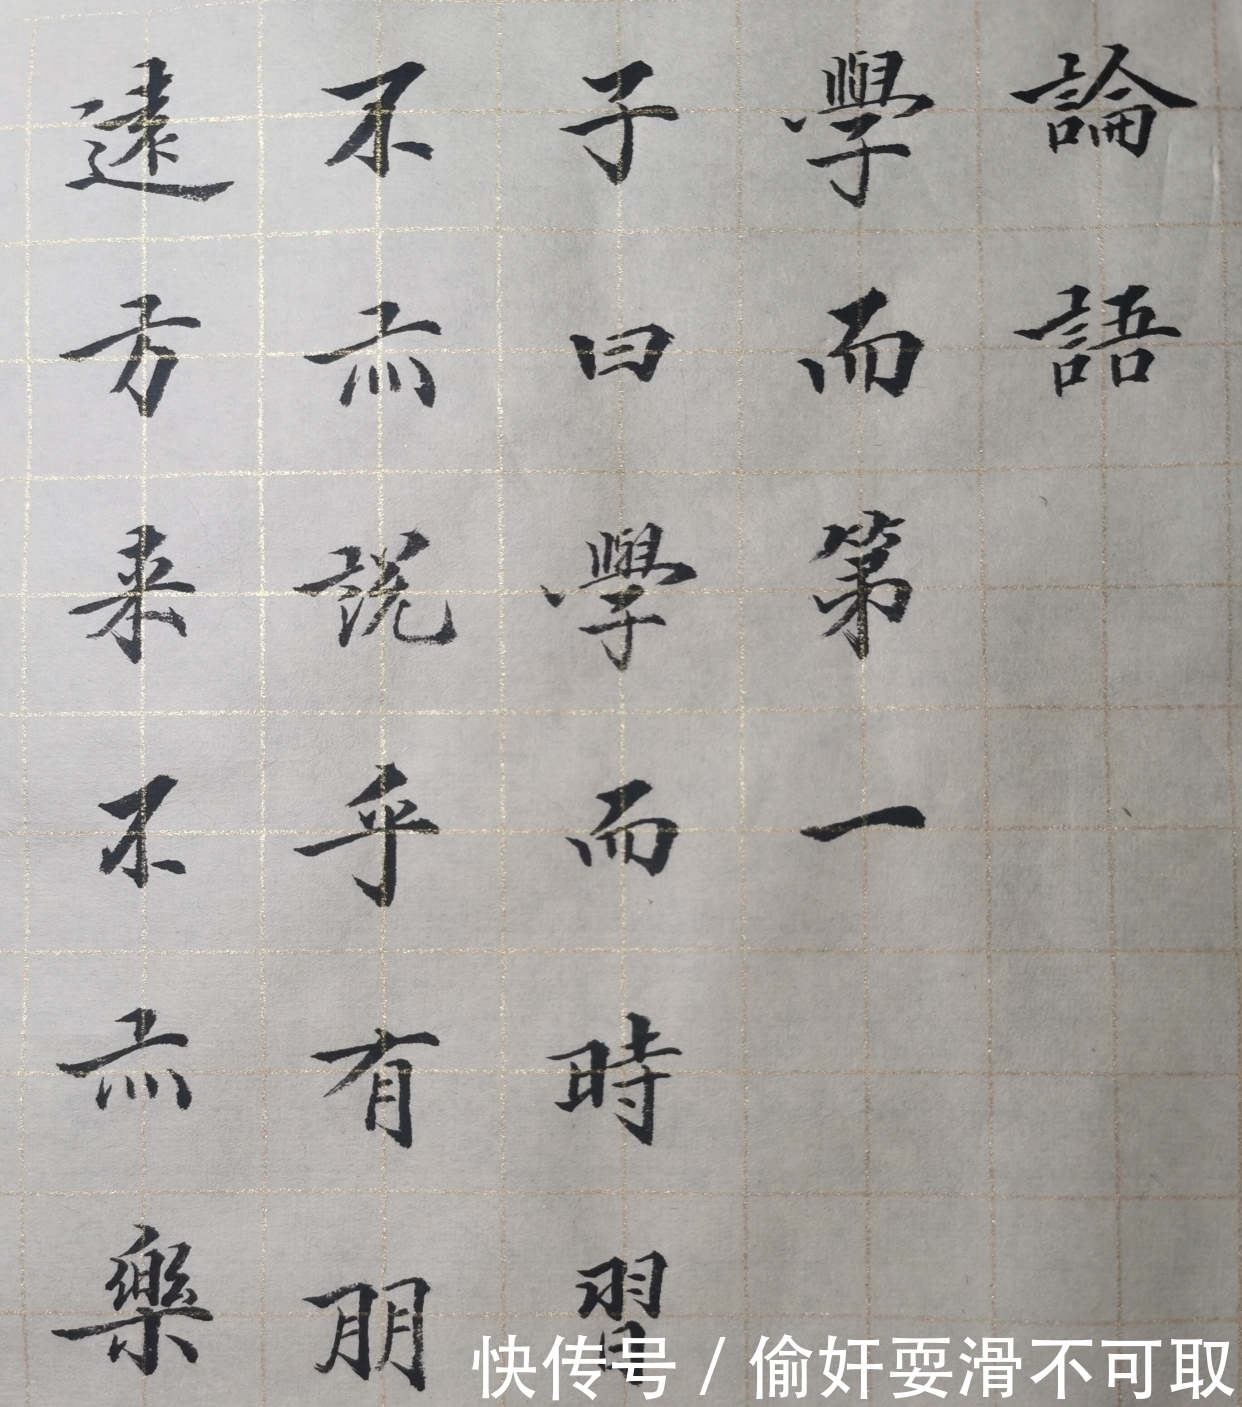 論語
學而第一
子曰學而時習
不亦説乎有朋
遠方来不亦樂
快传号/偷奸耍滑不可取